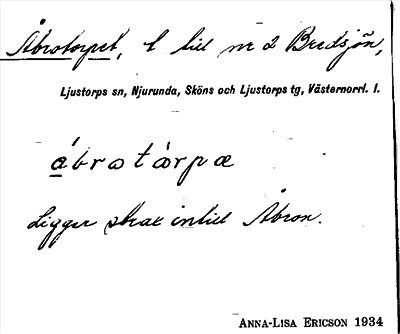 Åbrotorpet, l till nr 2 Bredsjön,
Ljustorps sn, Njurunda, Sköns och Ljustorps tg, Västernorrl. l.
ábrotàrpæ
Ligger strax intill Åbron.
ANNA-LISA ERICSON 1934